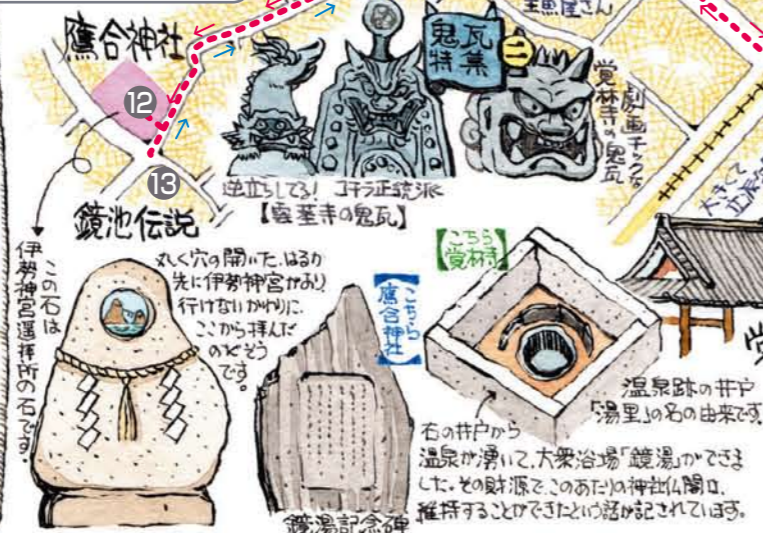 鷹合神社
⑫
⑬
鏡池伝説
生魚屋さん
鬼瓦
特集
二
劇画チックな
覚林寺の鬼瓦
逆立ちしてる! コチラ正統派
大きくて
この石は
伊勢神宮遥拝所の石です。
丸く穴の開いた、はるか
先に伊勢神宮があり
行けないかわりに、
ここから拝んだ
のだそう
です。
【こちら
鷹合神社】
鏡湯記念碑
【こちら
覚林寺】
温泉跡の井戸
「湯里」の名の由来です。
右の井戸から
温泉が湧いて、大衆浴場「鏡湯」ができま
した。その財源で、このあたりの神社仏閣は、
維持することができたという話が記されています。